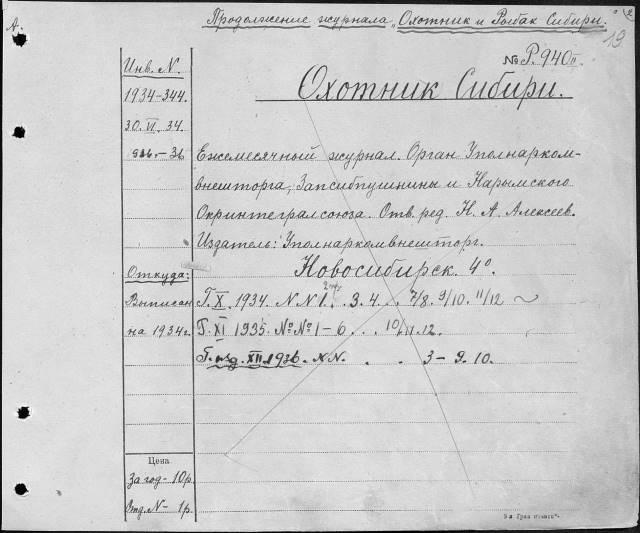 Продолжение журнала "Охотник и Рыбак Сибири."
19
№ Р.940 II
Инв. N.
Охотник Сибири.
1934-344.
30.VI.34.
Ежемесячный журнал. Орган Уполнарком-
внешторга, Запсибпушнины и Нарымского
Окринтегралсоюза. Отв. ред. Н. А. Алексеев.
Издатель: Уполнаркомвнешторг.
Новосибирск. 4º.
Откуда:
Выписан Г. X. 1934. N.N 1. . 3. 4. . . 7/8. 9/10. 11/12
на 1934г. Г. XI 1935. №№ 1-6 . . . 10/11. 12.
Г. изд. XII. 1936. N.N. . . 3 - 9. 10.
Цена
За год - 10р.
Отд. N - 1р.